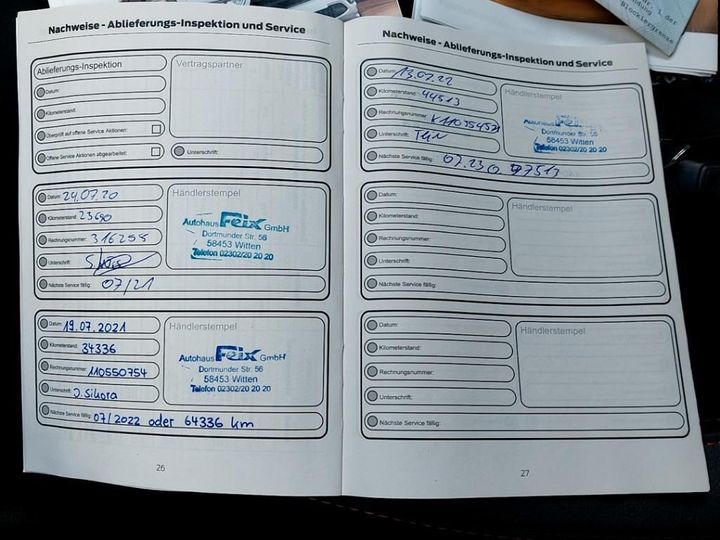 Nachweise - Ablieferungs-Inspektion und Service
Ablieferungs-Inspektion
Vertragspartner
Datum:
Kilometerstand:
Überprüft auf offene Service Aktionen:
Offene Service Aktionen abgearbeitet:
Unterschrift:
Datum: 24.07.20
Kilometerstand: 23690
Rechnungsnummer: 316255
Unterschrift:
Nächste Service fällig: 07/21
Händlerstempel
Autohaus Feix GmbH
Dortmunder Str. 56
58453 Witten
Telefon 02302/20 20 20
Datum: 19.07.2021
Kilometerstand: 34336
Rechnungsnummer: 110550754
Unterschrift: J. Sikora
Nächste Service fällig: 07/2022 oder 64336 km
Händlerstempel
Autohaus Feix GmbH
Dortmunder Str. 56
58453 Witten
Telefon 02302/20 20 20
26
Nachweise - Ablieferungs-Inspektion und Service
Datum: 13.07.22
Kilometerstand: 44513
Rechnungsnummer:
Unterschrift:
Nächste Service fällig: 07.23
Händlerstempel
Autohaus Feix
Dortmunder Str. 56
58453 Witten
Telefon 02302/20 20 20
Datum:
Kilometerstand:
Rechnungsnummer:
Unterschrift:
Nächste Service fällig:
Händlerstempel
Datum:
Kilometerstand:
Rechnungsnummer:
Unterschrift:
Nächste Service fällig:
Händlerstempel
27